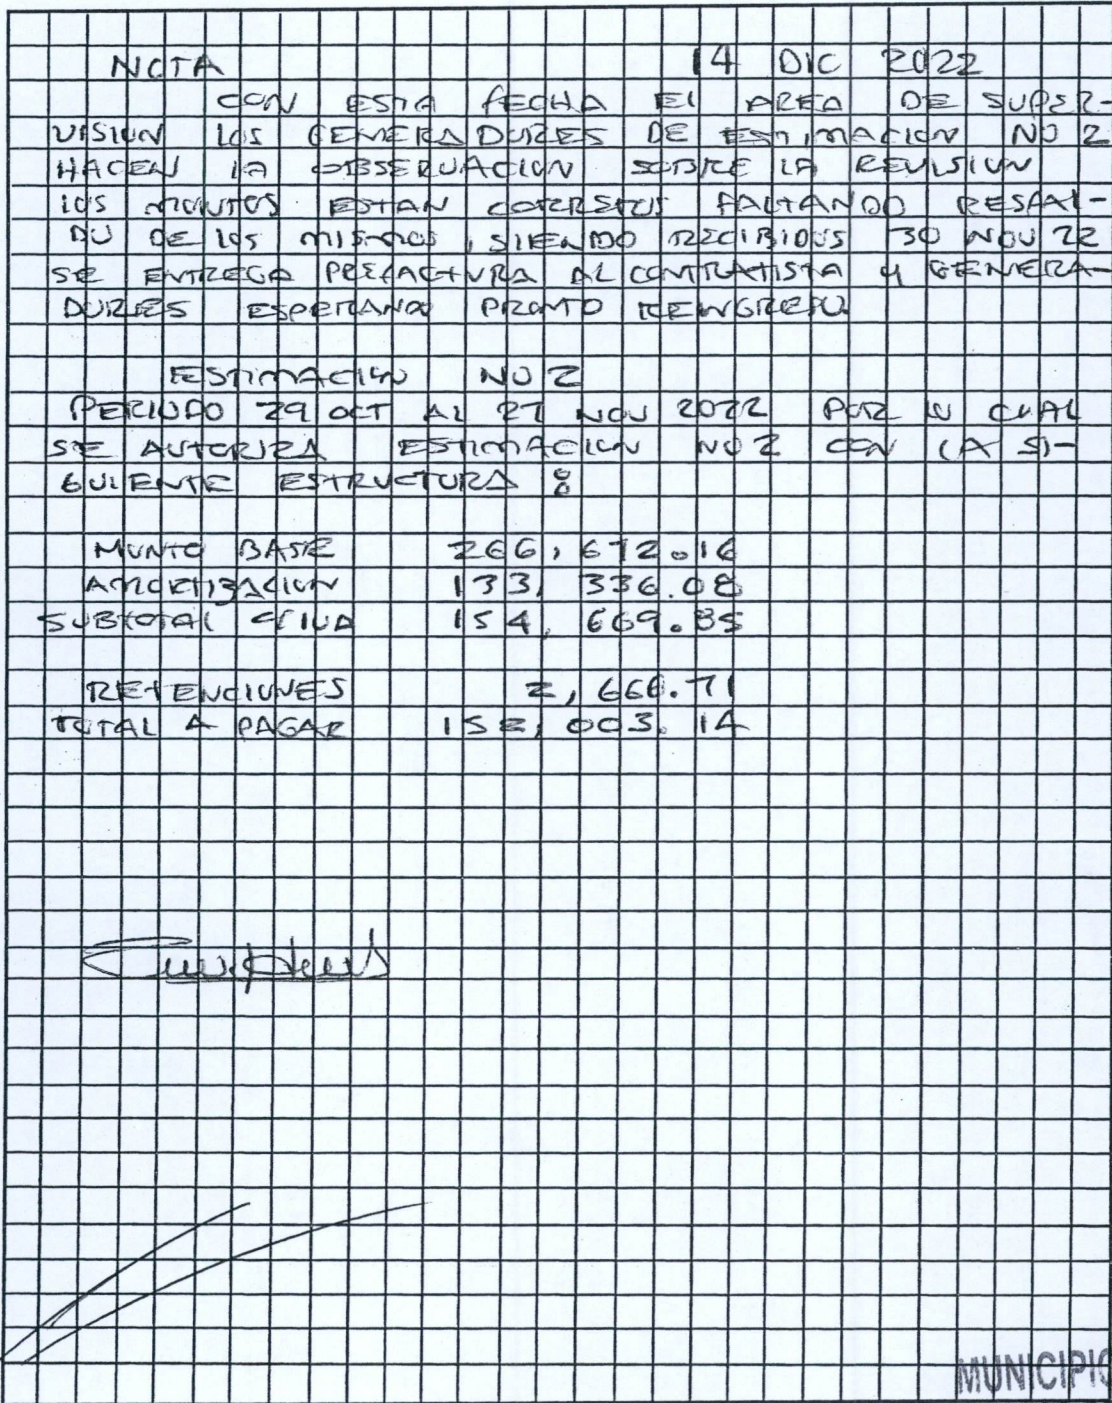 NOTA 14 DIC 2022
CON ESTA FECHA El AREA DE SUPER-
VISION LOS GENERADORES DE ESTIMACION NO 2
HACEN LA OBSERVACION SOBRE LA REVISION
LOS MONTOS ESTAN CORRECTOS FALTANDO RESPAL-
DO DE LOS MISMOS, SIENDO RECIBIDOS 30 NOV 22
SE ENTREGA PREFACTURA AL CONTRATISTA y GENERA-
DORES ESPERANDO PRONTO REINGRESO
ESTIMACION NO 2
PERIODO 29 OCT AL 27 NOV 2022 POR LO CUAL
SE AUTORIZA ESTIMACION NO 2 CON LA SI-
GUIENTE ESTRUCTURA :
MONTO BASE 266,672.16
AMORTIZACION 133,336.08
SUBTOTAL C/IVA 154,669.85
RETENCIONES 2,666.71
TOTAL A PAGAR 152,003.14
MUNICIPIO